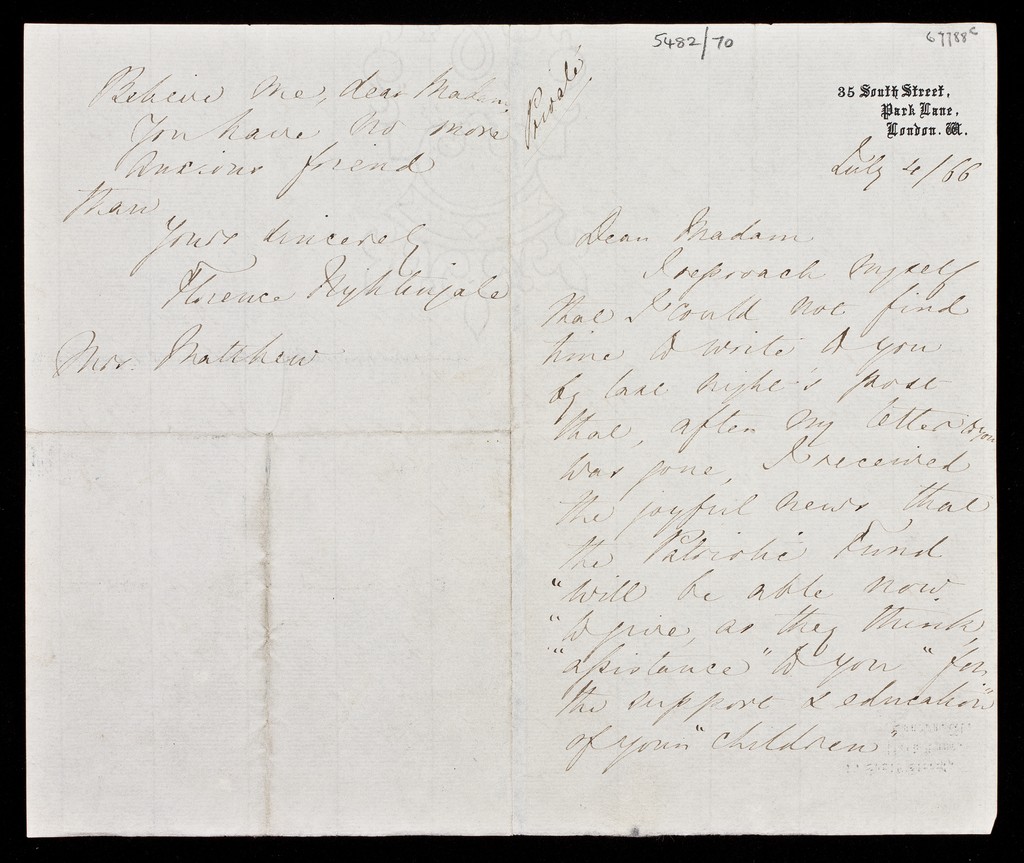 5482/70
67788c
Private
35 South Street,
Park Lane,
London. W.
July 4/66
Dear Madam
I reproach myself
that I could not find
time to write to you
by last night's post
that, after my letter to you
was gone, I received
the joyful news that
the Patriotic Fund
"will be able now
"to give, as they think,
"assistance" to you "for
the support & education"
of your "children"
Believe me, dear Madam
You have no more
anxious friend
than
Yours sincerely
Florence Nightingale
Mrs. Matthew